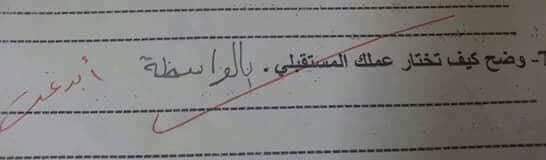 7- وضح كيف تختار عملك المستقبلي. بالواسطة
أبدعت